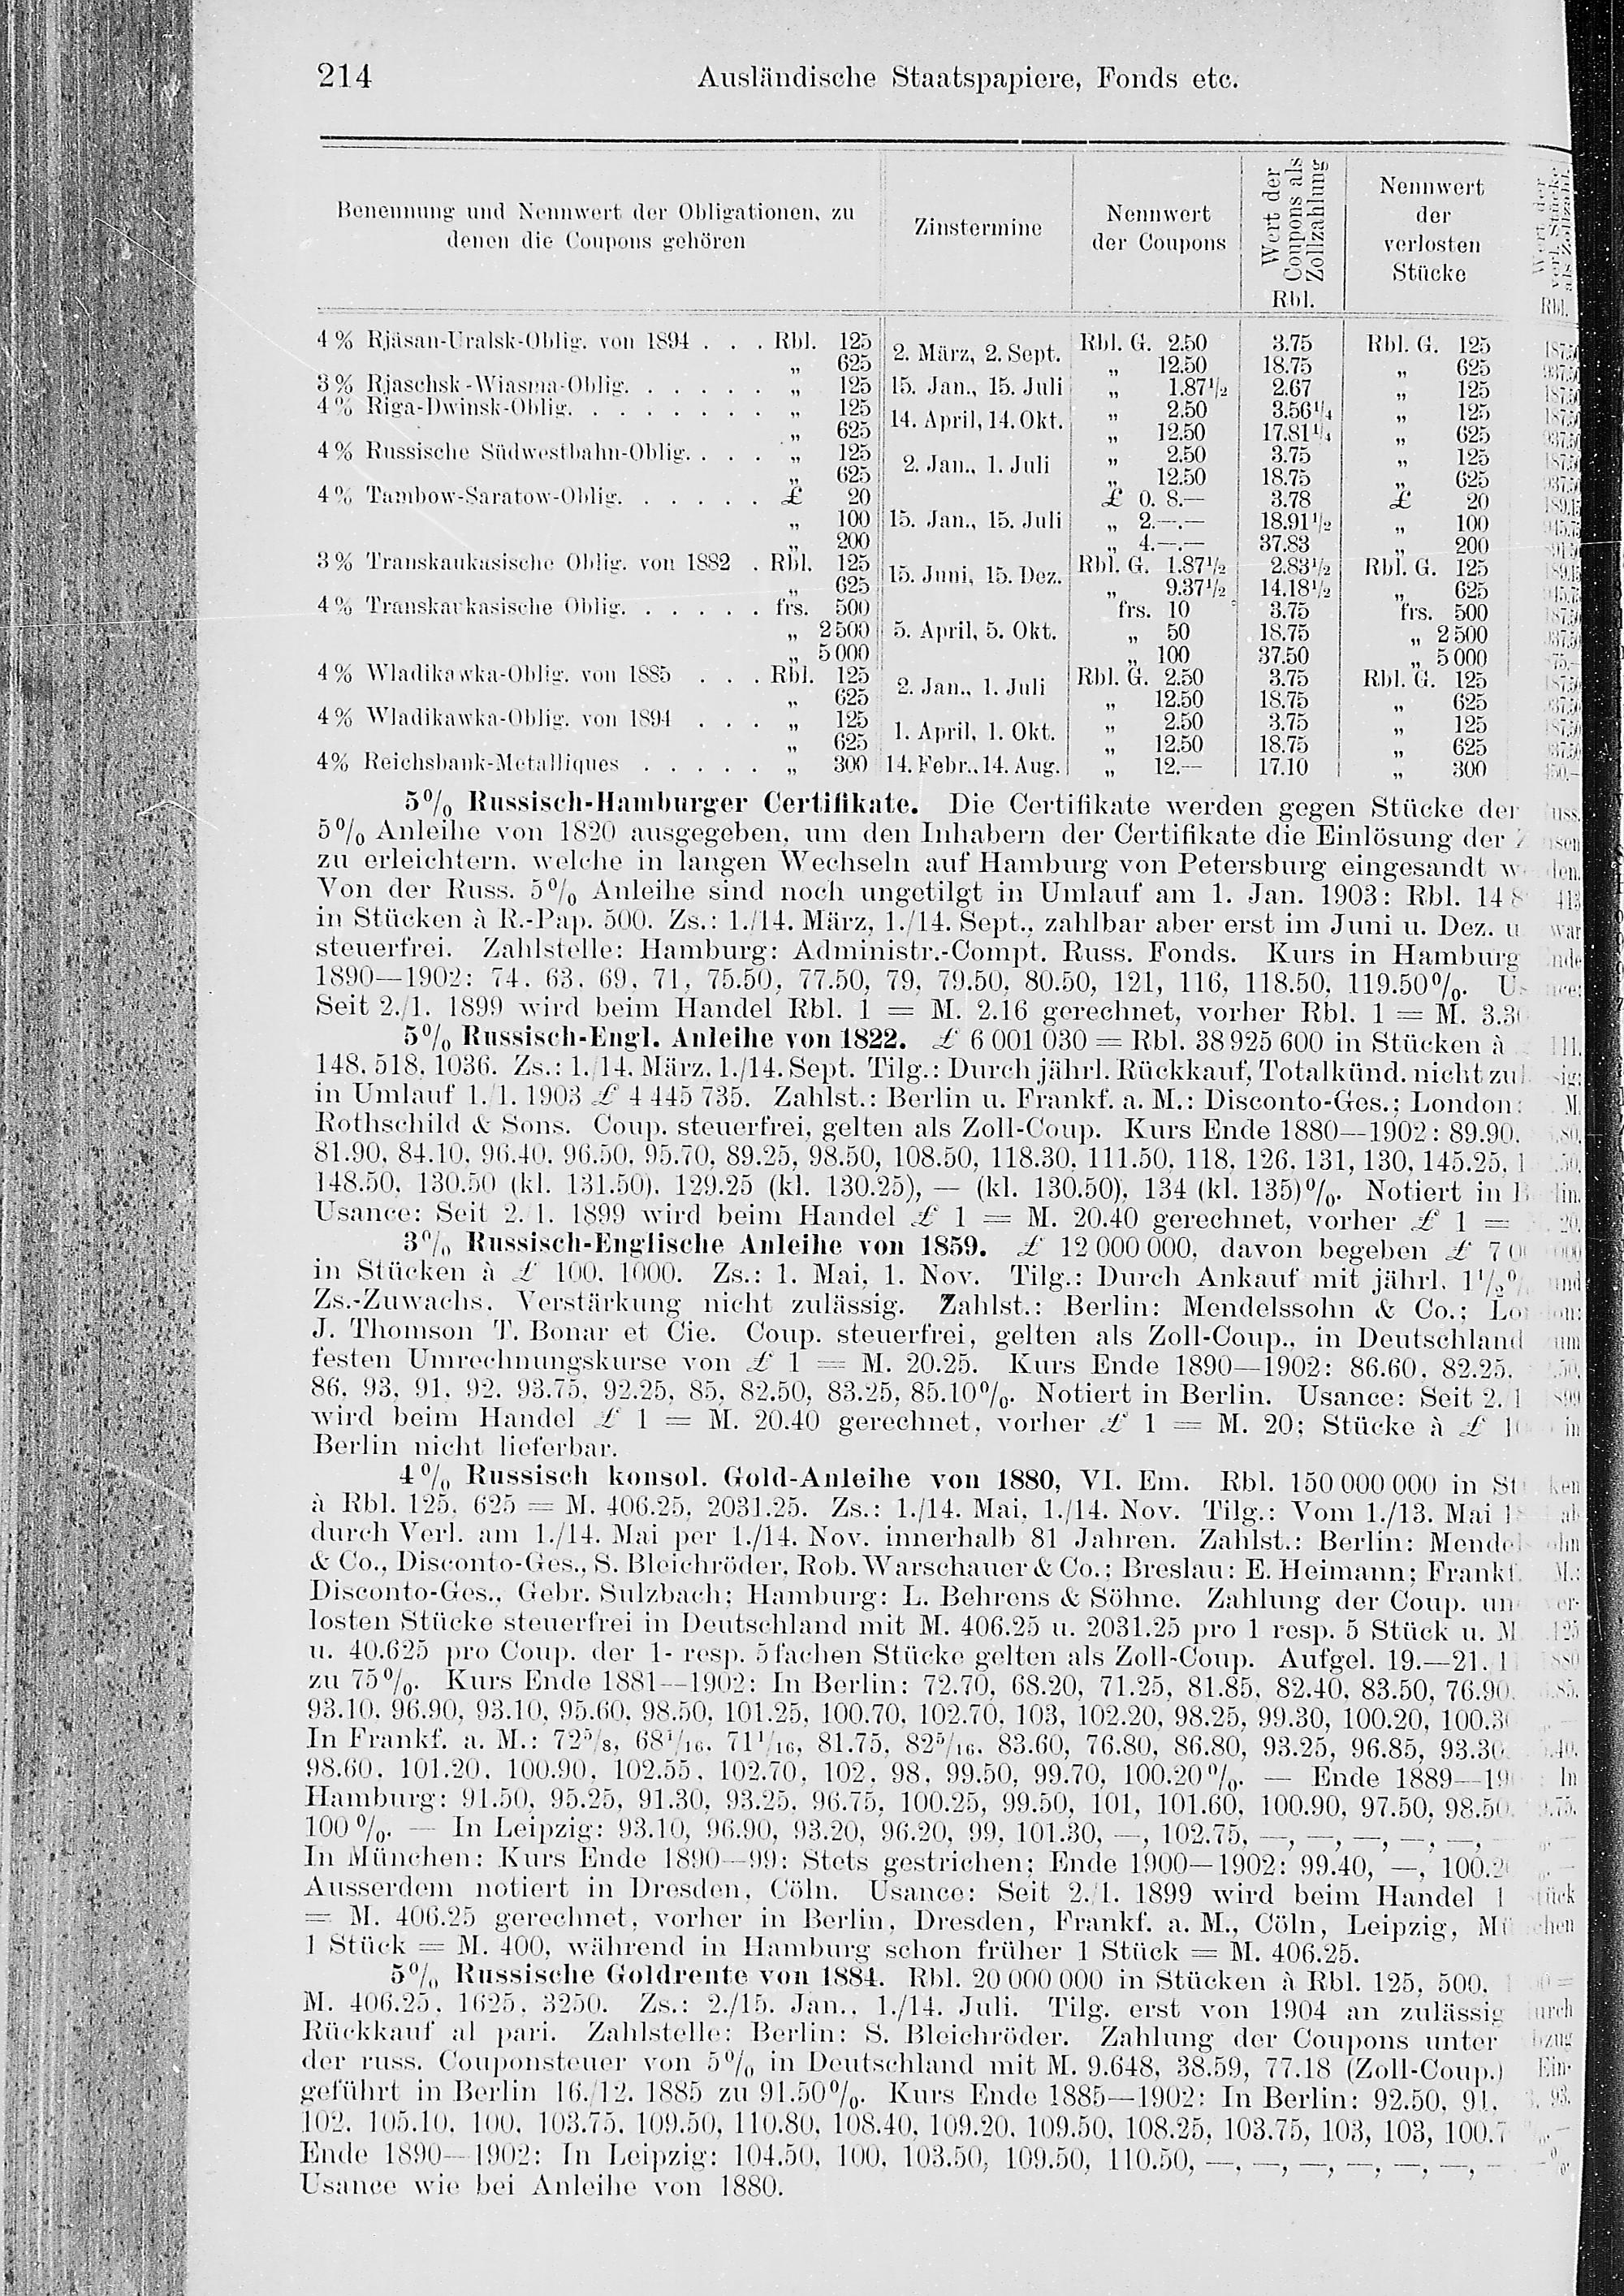 214 Ausländische Staatspapiere, Fonds etc.
Benennung und Nennwert der Obligationen, zu denen die Coupons gehören
Zinstermine
Nennwert der Coupons
Wert der Coupons als Zollzahlung Rbl.
Nennwert der verlosten Stücke
Rbl.
4% Rjäsan-Uralsk-Oblig. von 1894 . . . Rbl. 125 2. März, 2. Sept. Rbl. G. 2.50 3.75 Rbl. G. 125
„ 625 „ 12.50 18.75 „ 625
3% Rjaschsk-Wiasma-Oblig. . . . . . . „ 125 15. Jan., 15. Juli „ 1.87½ 2.67 „ 125
4% Riga-Dwinsk-Oblig. . . . . . . . . „ 125 14. April, 14. Okt. „ 2.50 3.56¼ „ 125
„ 625 „ 12.50 17.81¼ „ 625
4% Russische Südwestbahn-Oblig. . . . „ 125 2. Jan., 1. Juli „ 2.50 3.75 „ 125
„ 625 „ 12.50 18.75 „ 625
4% Tambow-Saratow-Oblig. . . . . . £ 20 15. Jan., 15. Juli £ 0. 8.— 3.78 £ 20
„ 100 „ 2.—.— 18.91½ „ 100
„ 200 „ 4.—.— 37.83 „ 200
3% Transkaukasische Oblig. von 1882 . Rbl. 125 15. Juni, 15. Dez. Rbl. G. 1.87½ 2.83½ Rbl. G. 125
„ 625 „ 9.37½ 14.18½ „ 625
4% Transkaukasische Oblig. . . . . . frs. 500 5. April, 5. Okt. frs. 10 3.75 frs. 500
„ 2500 „ 50 18.75 „ 2500
„ 5000 „ 100 37.50 „ 5000
4% Wladikawka-Oblig. von 1885 . . . Rbl. 125 2. Jan., 1. Juli Rbl. G. 2.50 3.75 Rbl. G. 125
„ 625 „ 12.50 18.75 „ 625
4% Wladikawka-Oblig. von 1894 . . . „ 125 1. April, 1. Okt. „ 2.50 3.75 „ 125
„ 625 „ 12.50 18.75 „ 625
4% Reichsbank-Metalliques . . . . . „ 300 14. Febr., 14. Aug. „ 12.— 17.10 „ 300
5% Russisch-Hamburger Certifikate. Die Certifikate werden gegen Stücke der
5% Anleihe von 1820 ausgegeben, um den Inhabern der Certifikate die Einlösung der
zu erleichtern, welche in langen Wechseln auf Hamburg von Petersburg eingesandt
Von der Russ. 5% Anleihe sind noch ungetilgt in Umlauf am 1. Jan. 1903: Rbl. 14
in Stücken à R.-Pap. 500. Zs.: 1./14. März, 1./14. Sept., zahlbar aber erst im Juni u. Dez.
steuerfrei. Zahlstelle: Hamburg: Administr.-Compt. Russ. Fonds. Kurs in Hamburg
1890—1902: 74, 63, 69, 71, 75.50, 77.50, 79, 79.50, 80.50, 121, 116, 118.50, 119.50%.
Seit 2./1. 1899 wird beim Handel Rbl. 1 = M. 2.16 gerechnet, vorher Rbl. 1 = M.
5% Russisch-Engl. Anleihe von 1822. £ 6 001 030 = Rbl. 38 925 600 in Stücken à
148, 518, 1036. Zs.: 1./14. März, 1./14. Sept. Tilg.: Durch jährl. Rückkauf, Totalkünd. nicht
in Umlauf 1./1. 1903 £ 4 445 735. Zahlst.: Berlin u. Frankf. a. M.: Disconto-Ges.; London:
Rothschild & Sons. Coup. steuerfrei, gelten als Zoll-Coup. Kurs Ende 1880—1902: 89.90,
81.90, 84.10, 96.40, 96.50, 95.70, 89.25, 98.50, 108.50, 118.30, 111.50, 118, 126, 131, 130, 145.25,
148.50, 130.50 (kl. 131.50), 129.25 (kl. 130.25), — (kl. 130.50), 134 (kl. 135)%. Notiert in
Usance: Seit 2./1. 1899 wird beim Handel £ 1 = M. 20.40 gerechnet, vorher £ 1 =
3% Russisch-Englische Anleihe von 1859. £ 12 000 000, davon begeben £
in Stücken à £ 100, 1000. Zs.: 1. Mai, 1. Nov. Tilg.: Durch Ankauf mit jährl. 1½%
Zs.-Zuwachs. Verstärkung nicht zulässig. Zahlst.: Berlin: Mendelssohn & Co.;
J. Thomson T. Bonar et Cie. Coup. steuerfrei, gelten als Zoll-Coup., in Deutschland
festen Umrechnungskurse von £ 1 = M. 20.25. Kurs Ende 1890—1902: 86.60, 82.25,
86, 93, 91, 92, 93.75, 92.25, 85, 82.50, 83.25, 85.10%. Notiert in Berlin. Usance: Seit 2./1
wird beim Handel £ 1 = M. 20.40 gerechnet, vorher £ 1 = M. 20; Stücke à £
Berlin nicht lieferbar.
4% Russisch konsol. Gold-Anleihe von 1880, VI. Em. Rbl. 150 000 000 in
à Rbl. 125, 625 = M. 406.25, 2031.25. Zs.: 1./14. Mai, 1./14. Nov. Tilg.: Vom 1./13. Mai
durch Verl. am 1./14. Mai per 1./14. Nov. innerhalb 81 Jahren. Zahlst.: Berlin:
& Co., Disconto-Ges., S. Bleichröder, Rob. Warschauer & Co.; Breslau: E. Heimann; Frankf.
Disconto-Ges., Gebr. Sulzbach; Hamburg: L. Behrens & Söhne. Zahlung der Coup.
losten Stücke steuerfrei in Deutschland mit M. 406.25 u. 2031.25 pro 1 resp. 5 Stück u. M
u. 40.625 pro Coup. der 1- resp. 5fachen Stücke gelten als Zoll-Coup. Aufgel. 19.—21.
zu 75%. Kurs Ende 1881—1902: In Berlin: 72.70, 68.20, 71.25, 81.85, 82.40, 83.50, 76.90,
93.10, 96.90, 93.10, 95.60, 98.50, 101.25, 100.70, 102.70, 103, 102.20, 98.25, 99.30, 100.20,
In Frankf. a. M.: 72⅝, 68¹/₁₆, 71¹/₁₆, 81.75, 82⁵/₁₆, 83.60, 76.80, 86.80, 93.25, 96.85, 93.30,
98.60, 101.20, 100.90, 102.55, 102.70, 102, 98, 99.50, 99.70, 100.20%. — Ende
Hamburg: 91.50, 95.25, 91.30, 93.25, 96.75, 100.25, 99.50, 101, 101.60, 100.90, 97.50, 98.50,
100%. — In Leipzig: 93.10, 96.90, 93.20, 96.20, 99, 101.30, —, 102.75, —, —, —, —, —,
In München: Kurs Ende 1890—99: Stets gestrichen; Ende 1900—1902: 99.40, —,
Ausserdem notiert in Dresden, Cöln. Usance: Seit 2./1. 1899 wird beim Handel 1
= M. 406.25 gerechnet, vorher in Berlin, Dresden, Frankf. a. M., Cöln, Leipzig,
1 Stück = M. 400, während in Hamburg schon früher 1 Stück = M. 406.25.
5% Russische Goldrente von 1884. Rbl. 20 000 000 in Stücken à Rbl. 125, 500,
M. 406.25, 1625, 3250. Zs.: 2./15. Jan., 1./14. Juli. Tilg. erst von 1904 an zulässig
Rückkauf al pari. Zahlstelle: Berlin: S. Bleichröder. Zahlung der Coupons unter
der russ. Couponsteuer von 5% in Deutschland mit M. 9.648, 38.59, 77.18 (Zoll-Coup.)
geführt in Berlin 16./12. 1885 zu 91.50%. Kurs Ende 1885—1902: In Berlin: 92.50, 91,
102, 105.10, 100, 103.75, 109.50, 110.80, 108.40, 109.20, 109.50, 108.25, 103.75, 103, 103,
Ende 1890—1902: In Leipzig: 104.50, 100, 103.50, 109.50, 110.50, —, —, —, —, —, —,
Usance wie bei Anleihe von 1880.